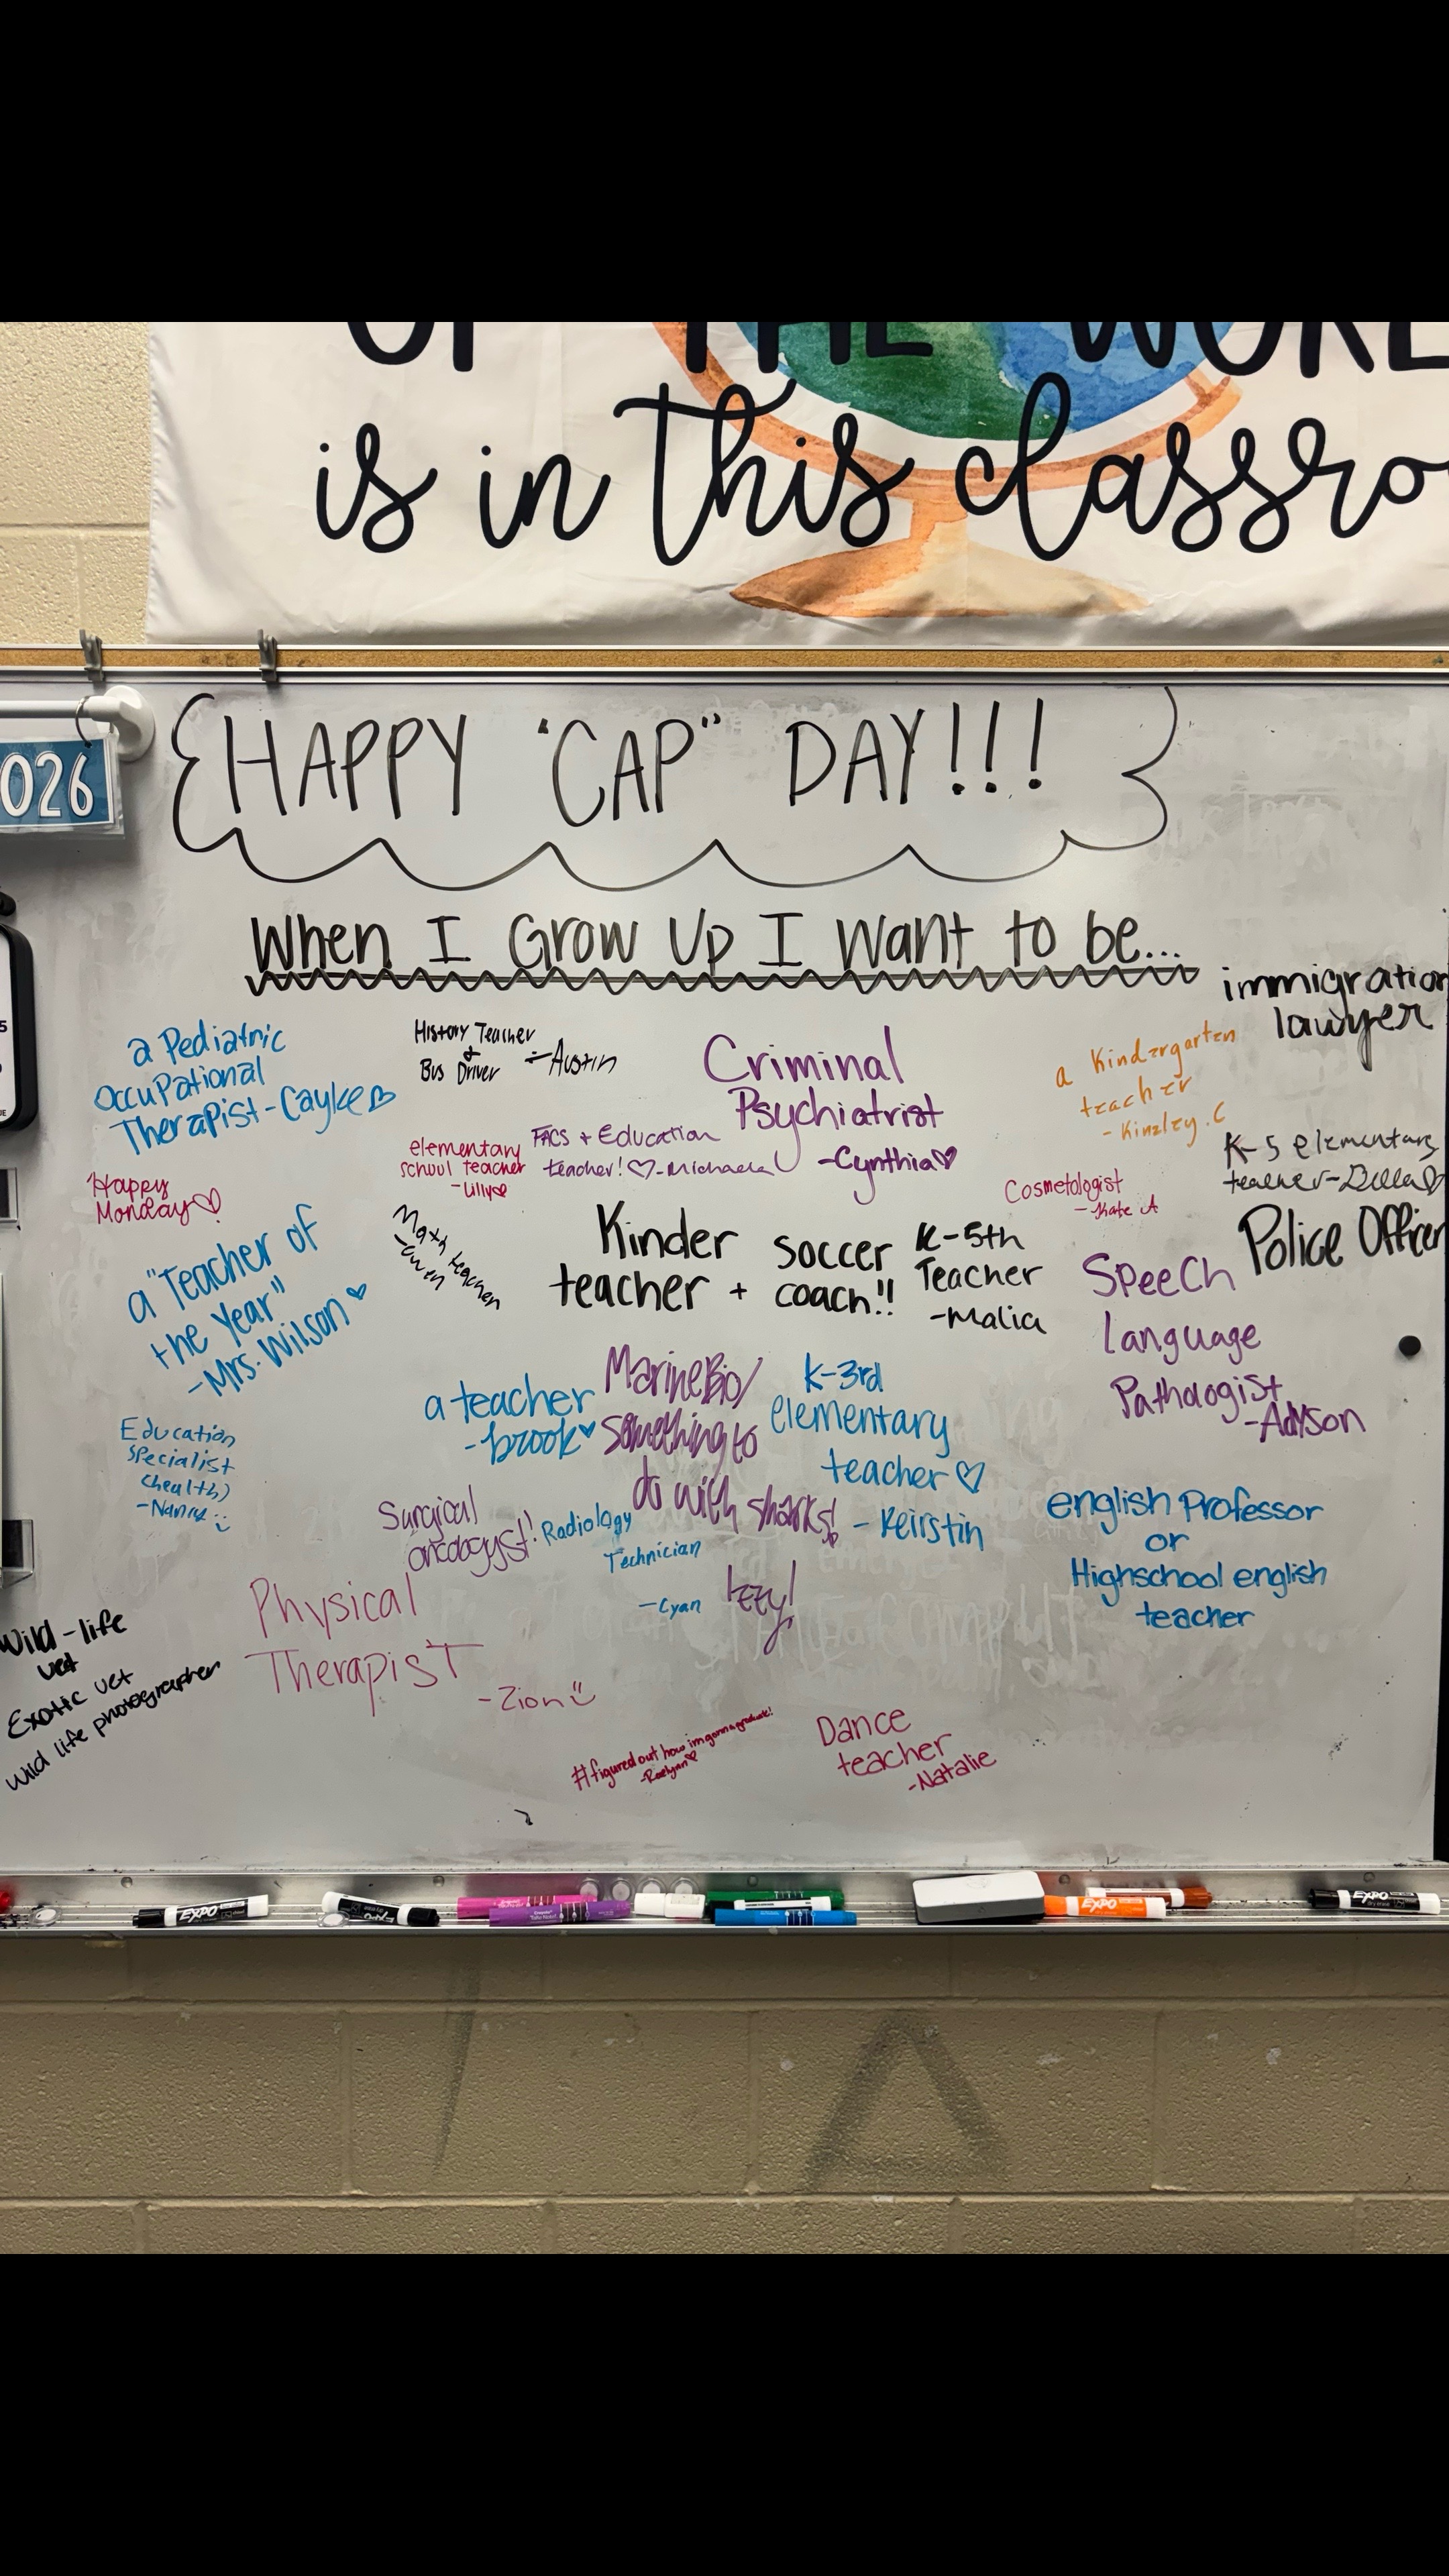 OF THE WORL
is in this classro
026
HAPPY "CAP" DAY!!!
When I Grow Up I Want to be...
immigration
lawyer
a Pediatric
Occupational
Therapist-Cayke
History Teacher
+
Bus Driver
-Austin
Criminal
Psychiatrist
-Cynthia
a Kindergarten
teacher
- Kinzley.C
elementary
school teacher
-Lilly
FACS + Education
teacher! -Michaela
K-5 elementary
teacher-
Happy
Monday
Cosmetologist
-Kate A
Police Officer
a "Teacher of
the Year"
-Mrs. Wilson
Math teacher
-Owen
Kinder
teacher + soccer
coach!!
K-5th
Teacher
-Malia
Speech
language
Pathologist
-Adyson
a teacher
-brook
Marine Bio/
something to
do with sharks!
Izzy!
K-3rd
elementary
teacher
- Keirstin
Education
Specialist
(health)
-Nancy
Surgical
oncologyst!
Radiology
Technician
-Cyan
english Professor
or
Highschool english
teacher
Physical
Therapist
-Zion
Wild-life
vet
Exotic vet
Wild life photographer
#figured out how im gonna graduate!
-Raelynn
Dance
teacher
-Natalie
EXPO
EXPO
EXPO
EXPO